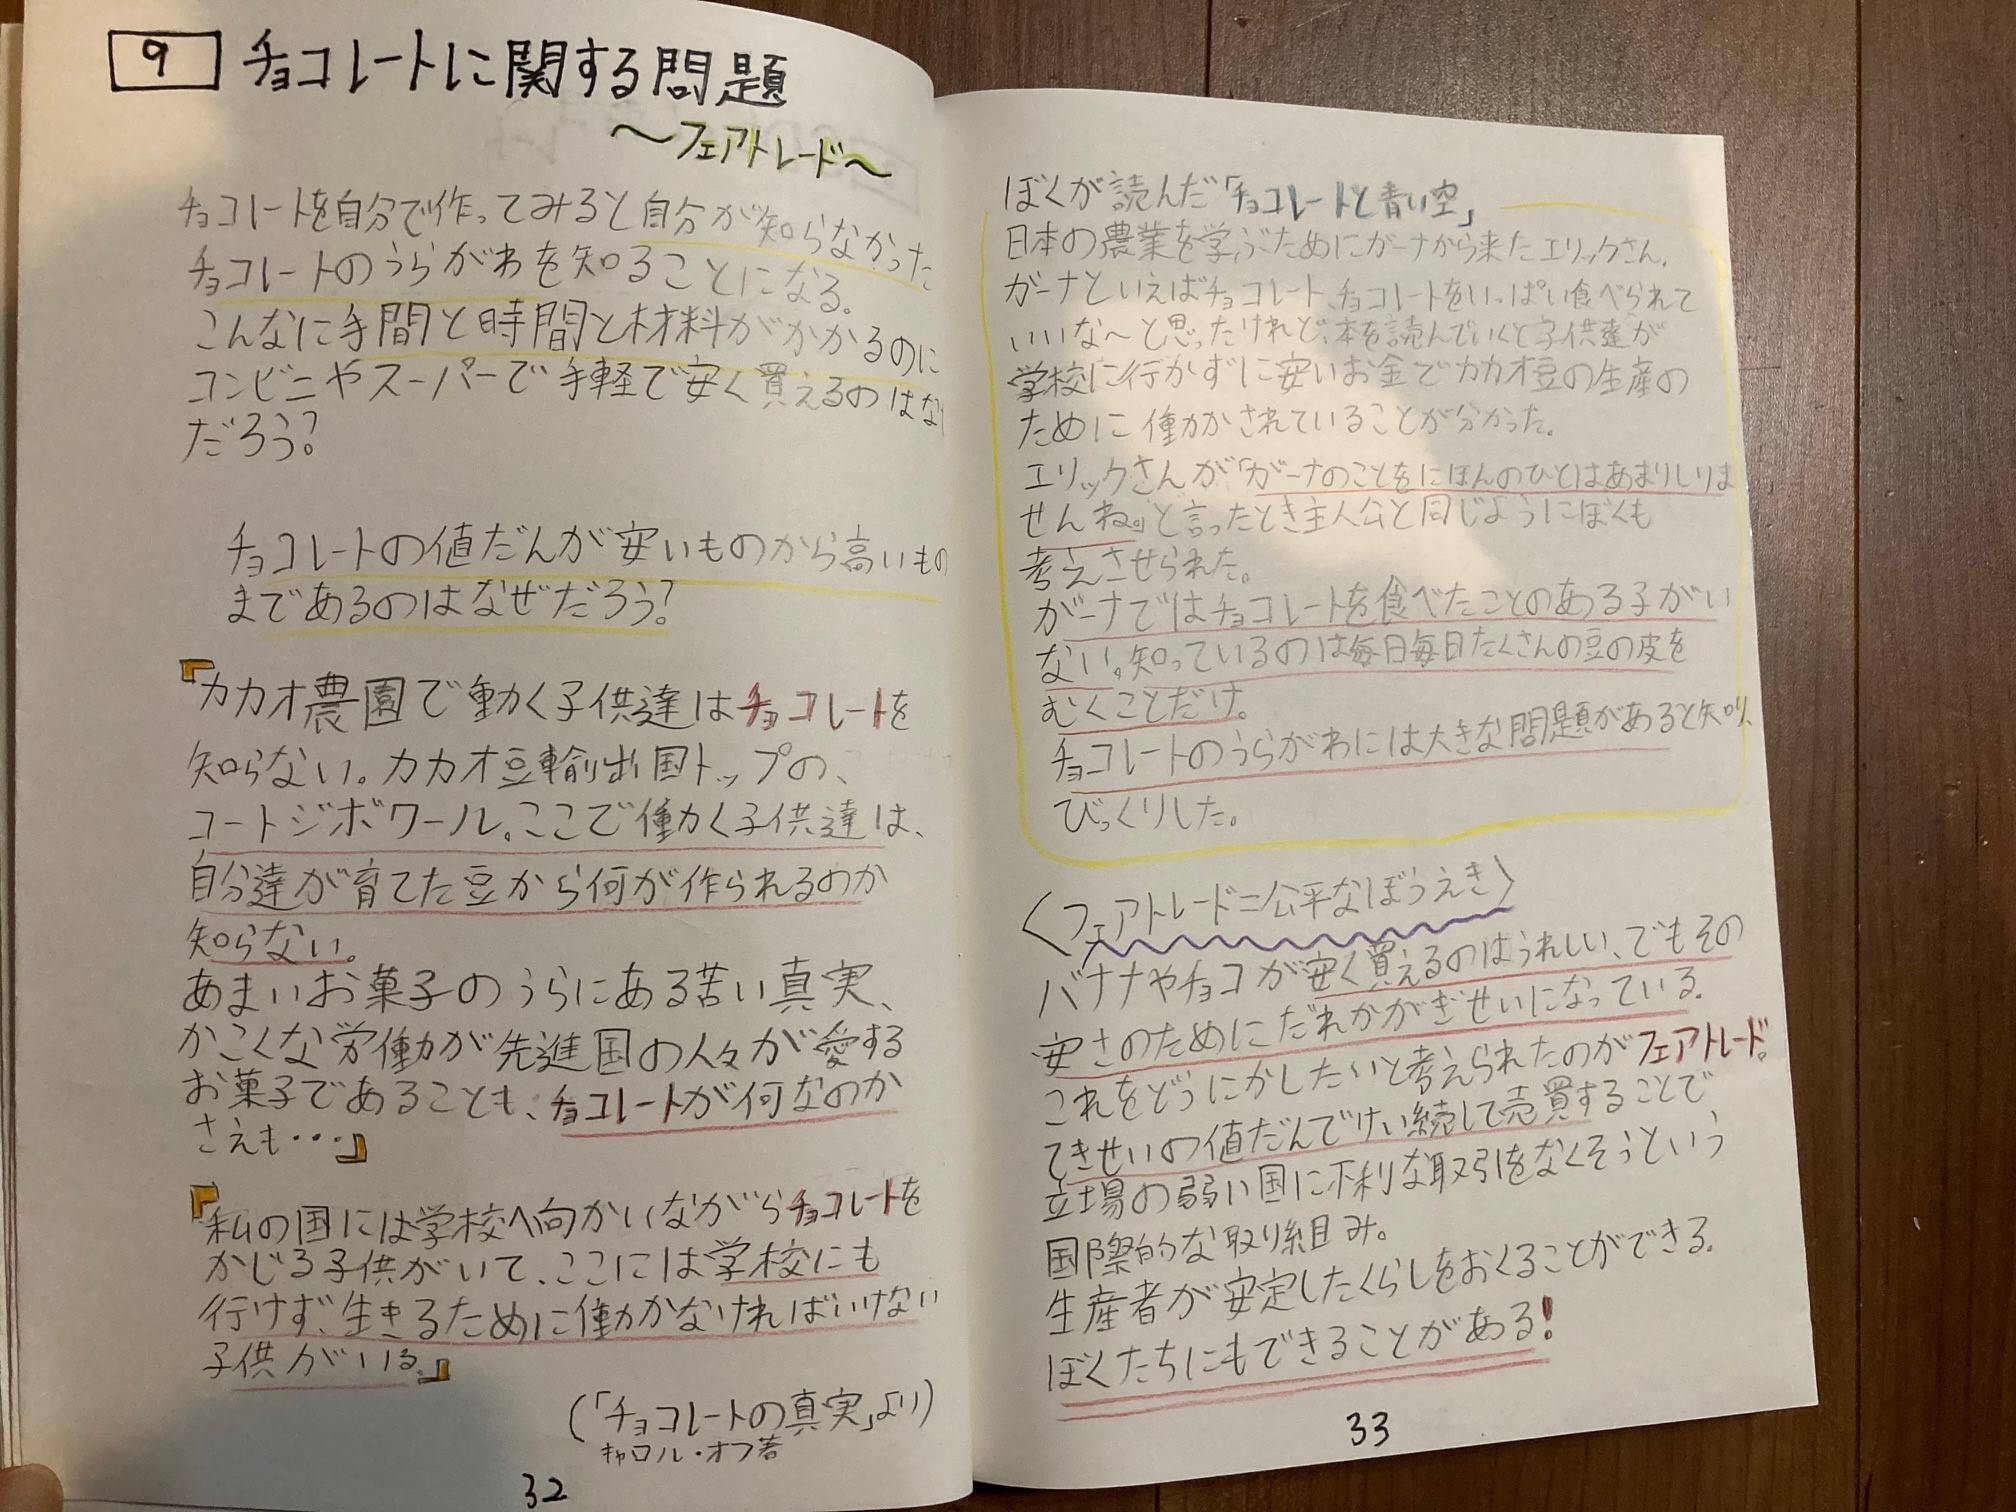 9 チョコレートに関する問題
〜フェアトレード〜
チョコレートを自分で作ってみると自分が知らなかった
チョコレートのうらがわを知ることになる。
こんなに手間と時間と材料がかかるのに
コンビニやスーパーで手軽で安く買えるのはな
だろう?
チョコレートの値だんが安いものから高いもの
まであるのはなぜだろう?
『カカオ農園で働く子供達はチョコレートを
知らない。カカオ豆輸出国トップの、
コートジボワール。ここで働く子供達は、
自分達が育てた豆から何が作られるのか
知らない。
あまいお菓子のうらにある苦い真実、
かこくな労働が先進国の人々が愛する
お菓子であることも、チョコレートが何なのか
さえも・・・』
『私の国には学校へ向かいながらチョコレートを
かじる子供がいて、ここには学校にも
行けず、生きるために働かなければいけない
子供がいる。』
(「チョコレートの真実」より)
キャロル・オフ著
32
ぼくが読んだ「チョコレートと青い空」
日本の農業を学ぶためにガーナから来たエリックさん。
ガーナといえばチョコレート、チョコレートをいっぱい食べられて
いいな〜と思ったけれど、本を読んでいくと子供達が
学校に行かずに安いお金でカカオ豆の生産の
ために働かされていることが分かった。
エリックさんが「ガーナのことをにほんのひとはあまりしりま
せんね。」と言ったとき主人公と同じようにぼくも
考えさせられた。
ガーナではチョコレートを食べたことのある子がい
ない。知っているのは毎日毎日たくさんの豆の皮を
むくことだけ。
チョコレートのうらがわには大きな問題があると知り、
びっくりした。
〈フェアトレード=公平なぼうえき〉
バナナやチョコが安く買えるのはうれしい、でもその
安さのためにだれかがぎせいになっている。
これをどうにかしたいと考えられたのがフェアトレード。
てきせいの値だんでけい続して売買することで
立場の弱い国に不利な取引をなくそうという
国際的な取り組み。
生産者が安定したくらしをおくることができる。
ぼくたちにもできることがある!
33